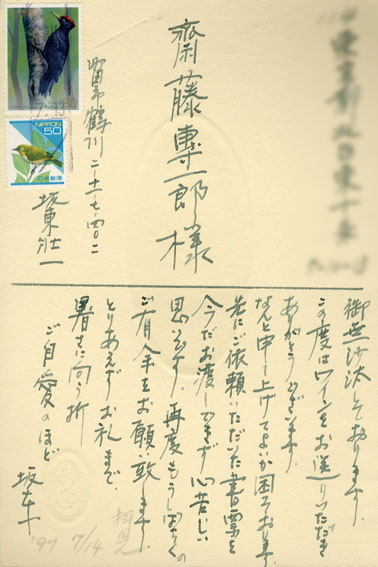 齋藤專一郎様
昭島市鶴川二-十一-七-四〇二
坂東壯一
NIPPON
50
日本郵便
御無沙汰しております。
この度はワインをお送りいただき
ありがとうございます。
なんと申し上げてよいか困っております。
先にご依頼いただいた書票を
今だお渡しできず心苦しい
思いです。再度もうしばらくの
ご猶予をお願い致します。
とりあえずお礼まで。
暑さに向う折
ご自愛のほど
坂東
'97 7/14